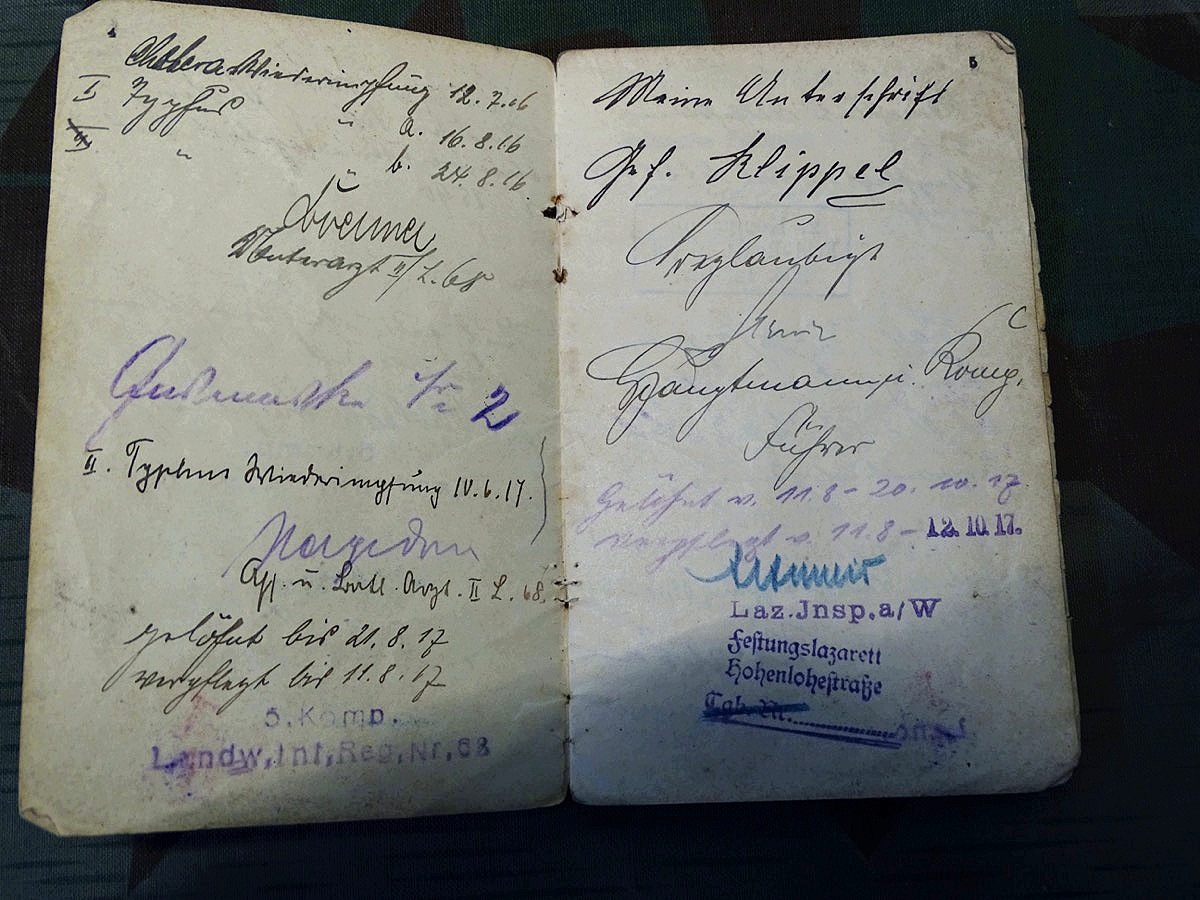 4
Cholera Wiederimpfung 12.7.16
I Typhus " a. 16.8.16
II " " b. 24.8.16
Unterarzt II/L. 68
Gasmaske Gr 2
II. Typhus Wiederimpfung 10.6.17.
Ass. u. Batl. Arzt. II L. 68.
gelöhnt bis 21.8.17
verpflegt bis 11.8.17
5. Komp.
Landw. Inf. Reg. Nr. 68
5
Meine Unterschrift
Gef. Klippel
Beglaubigt
Hauptmann u. Komp.
Führer
Gelöhnt v. 11.8 – 20.10.17.
verpflegt v. 11.8 – 12.10.17.
Laz. Jnsp. a/W
Festungslazarett
Hohenlohestraße
Tgb. Nr.